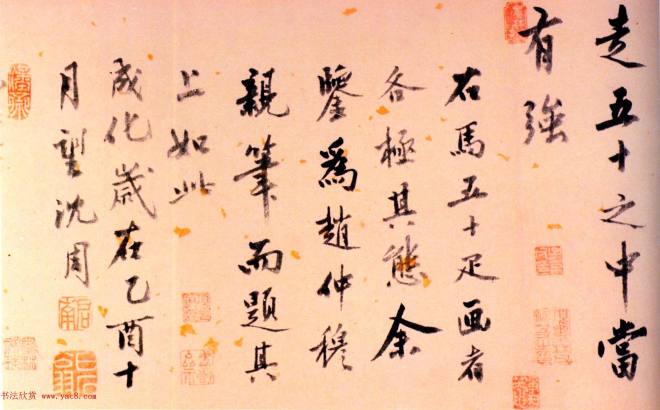 走五十之中當
有強
右馬五十疋画者
各極其態余
鑒爲趙仲穆
親筆而題其
上如此
成化歲在乙酉十
月望沈周
书法欣赏 www.yac8.com